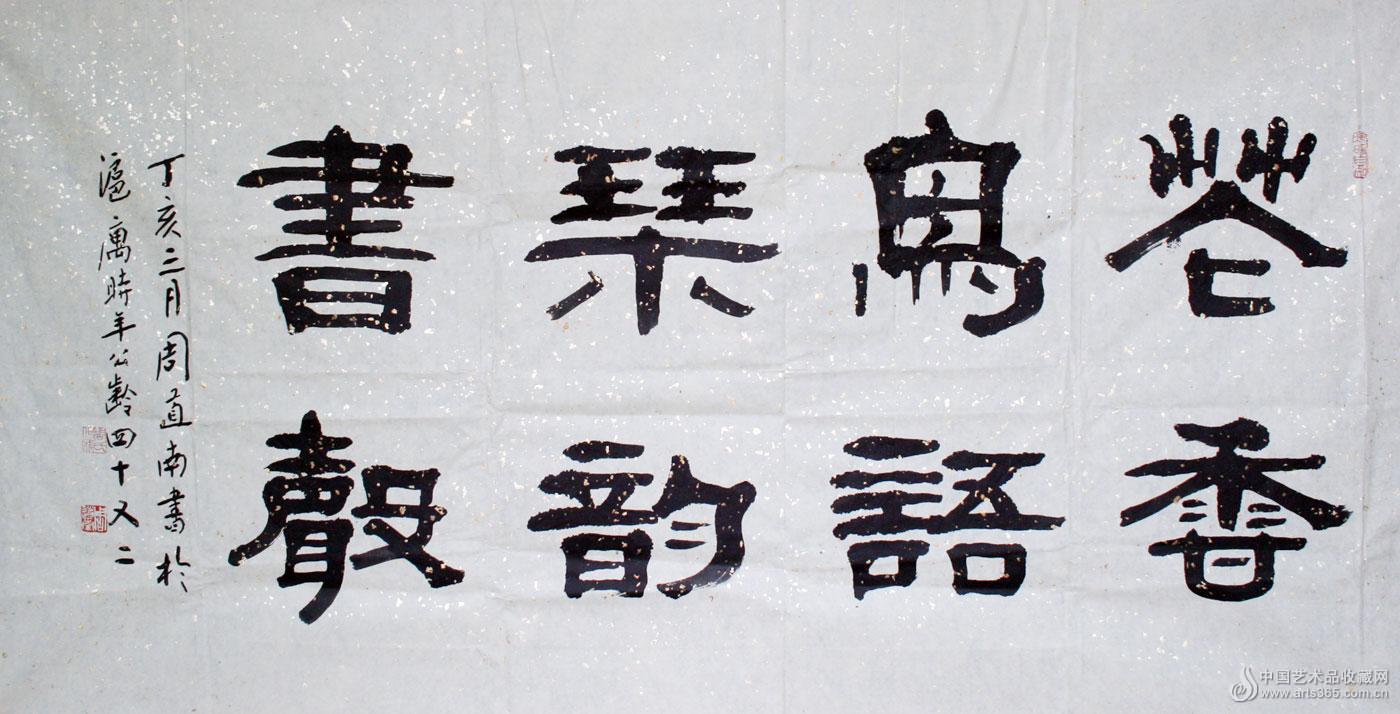 花香
鳥語
琴韵
書聲
丁亥三月周直南書於
滬寓時年公齡四十又二
中国艺术品收藏网
www.arts365.com.cn